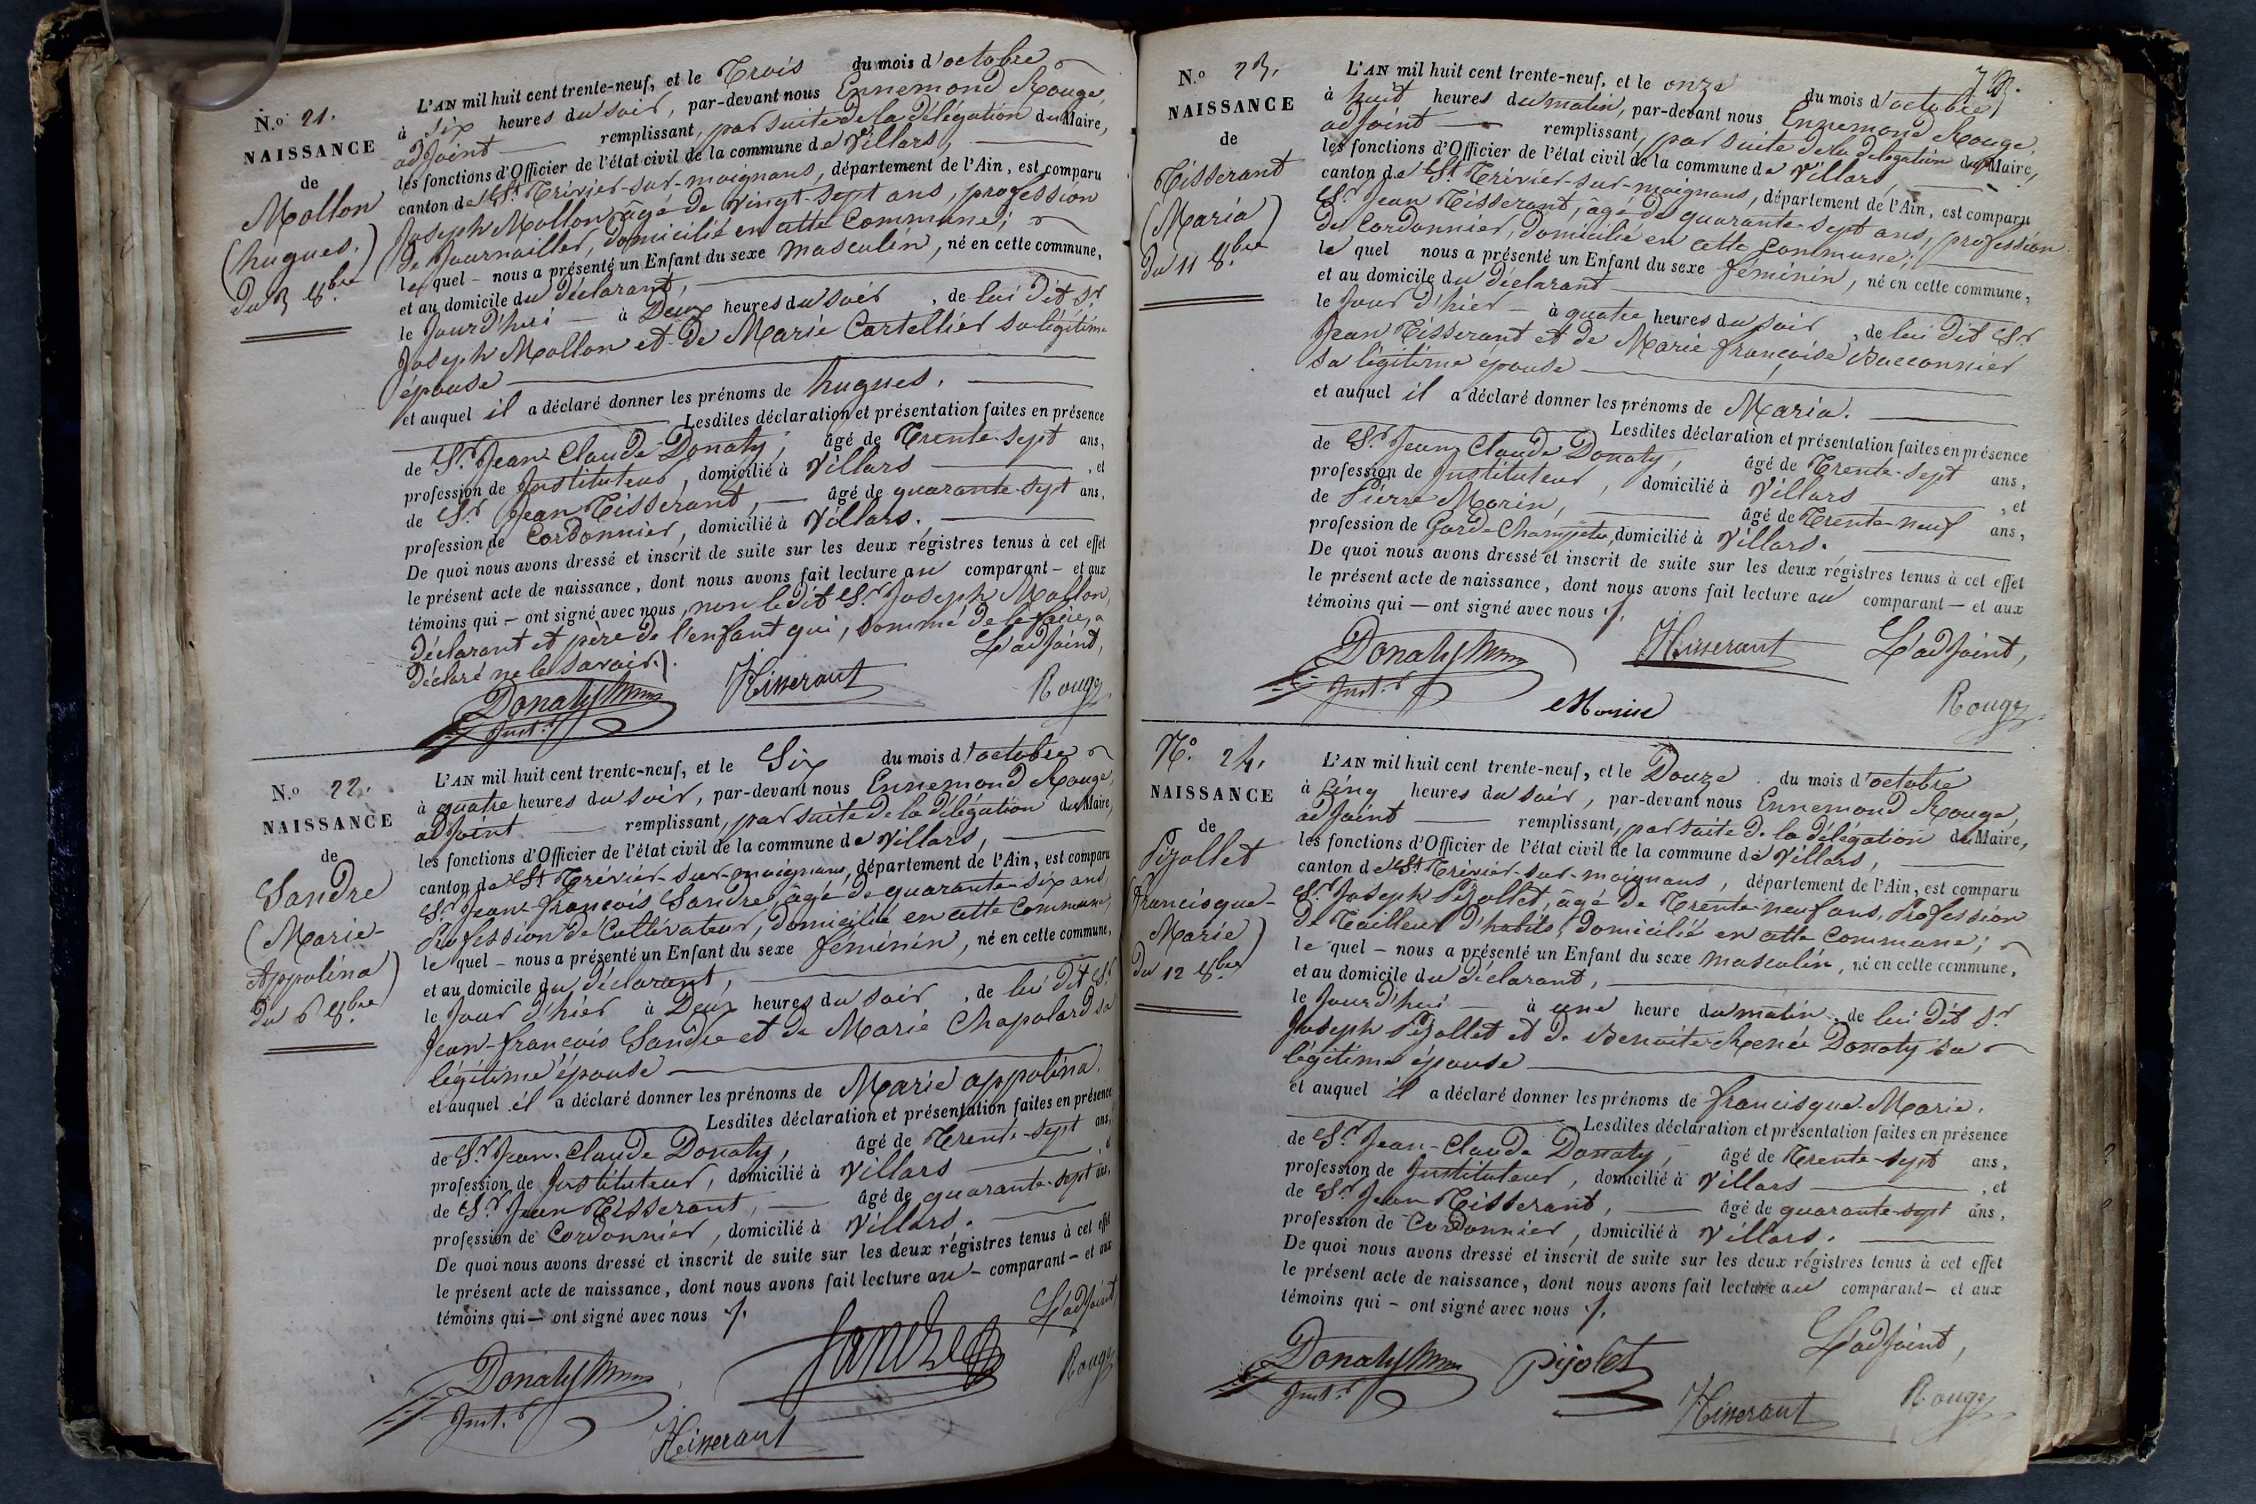 N.o 21.
NAISSANCE
de
Mollon
(hugues.)
du 3 8bre
L'AN mil huit cent trente-neuf, et le Trois du mois d'octobre
à six heures du soir, par-devant nous Ennemond Rouge,
adjoint remplissant, par suite de la délégation du Maire,
les fonctions d'Officier de l'état civil de la commune de Villars,
canton de St Trivier-sur-moignans, département de l'Ain, est comparu
Joseph Mollon âgé de vingt-sept ans, profession
de Journailler, domicilié en cette Commune;
le quel - nous a présenté un Enfant du sexe masculin, né en cette commune,
et au domicile du déclarant,
le jourd'hui - à Deux heures du soir, de lui dit Sr
Joseph Mollon et de Marie Cartellier sa légitime
épouse
et auquel il a déclaré donner les prénoms de hugues.
Lesdites déclaration et présentation faites en présence
de Sr. Jean Claude Donaty, âgé de Trente-sept ans,
profession de Instituteur, domicilié à Villars, et
de Sr. Jean Tisserant, âgé de quarante-sept ans,
profession de Cordonnier, domicilié à Villars.
De quoi nous avons dressé et inscrit de suite sur les deux régistres tenus à cet effet
le présent acte de naissance, dont nous avons fait lecture au comparant - et aux
témoins qui - ont signé avec nous, non ledit Sr Joseph Mollon,
déclarant et père de l'enfant qui, sommé de le faire, a
déclaré ne le savoir.
L'adjoint,
Donaty
Inst.r
Tisserant
Rouge
N.o 22.
NAISSANCE
de
Sandre
(Marie-
Appolina)
du 6 8bre
L'AN mil huit cent trente-neuf, et le Six du mois d'octobre
à quatre heures du soir, par-devant nous Ennemond Rouge,
adjoint remplissant, par suite de la délégation du Maire,
les fonctions d'Officier de l'état civil de la commune de Villars,
canton de St Trivier-sur-moignans, département de l'Ain, est comparu
Sr Jean-françois Sandre, âgé de quarante-six ans,
Profession de Cultivateur, domicilié en cette Commune,
le quel - nous a présenté un Enfant du sexe féminin, né en cette commune,
et au domicile du déclarant,
le jour d'hier à Deux heures du soir, de lui dit Sr
Jean-françois Sandre et de Marie Chapolard sa
légitime épouse
et auquel il a déclaré donner les prénoms de Marie appolina.
Lesdites déclaration et présentation faites en présence
de Sr Jean-Claude Donaty, âgé de Trente-sept ans,
profession de Instituteur, domicilié à Villars, et
de Sr Jean Tisserant, âgé de quarante-sept ans,
profession de Cordonnier, domicilié à Villars.
De quoi nous avons dressé et inscrit de suite sur les deux régistres tenus à cet effet
le présent acte de naissance, dont nous avons fait lecture au - comparant - et aux
témoins qui - ont signé avec nous /.
L'adjoint
Donaty
Inst.r
Sandre
Rouge
Tisserant
73.
N.o 23.
NAISSANCE
de
Tisserant
(Maria)
du 11 8bre
L'AN mil huit cent trente-neuf, et le onze du mois d'octobre
à huit heures du matin, par-devant nous Ennemond Rouge,
adjoint remplissant, par suite de la délégation du Maire,
les fonctions d'Officier de l'état civil de la commune de Villars,
canton de St Trivier-sur-moignans, département de l'Ain, est comparu
Sr. Jean Tisserant, âgé de quarante-sept ans, profession
de Cordonnier, domicilié en cette Commune;
le quel nous a présenté un Enfant du sexe féminin, né en cette commune,
et au domicile du déclarant
le jour d'hier - à quatre heures du soir, de lui dit Sr
Jean Tisserant et de Marie françoise Bacconnier
sa légitime épouse
et auquel il a déclaré donner les prénoms de Maria.
Lesdites déclaration et présentation faites en présence
de Sr Jean Claude Donaty, âgé de Trente-sept ans,
profession de Instituteur, domicilié à Villars, et
de Pierre Morin, âgé de Trente-neuf ans,
profession de Garde Champetre, domicilié à Villars.
De quoi nous avons dressé et inscrit de suite sur les deux régistres tenus à cet effet
le présent acte de naissance, dont nous avons fait lecture au comparant - et aux
témoins qui - ont signé avec nous /.
Donaty
Inst.r
Tisserant
L'adjoint,
Morin
Rouge
N.o 24.
NAISSANCE
de
Pijollet
(francisque-
Marie)
du 12 8bre
L'AN mil huit cent trente-neuf, et le Douze du mois d'octobre
à Cinq heures du soir, par-devant nous Ennemond Rouge,
adjoint remplissant, par suite de la délégation du Maire,
les fonctions d'Officier de l'état civil de la commune de Villars,
canton de St Trivier-sur-moignans, département de l'Ain, est comparu
Sr Joseph Pijollet, âgé de Trente-neuf ans, Profession
de Tailleur d'habits, domicilié en cette commune;
le quel - nous a présenté un Enfant du sexe masculin, né en cette commune,
et au domicile du déclarant,
le jourd'hui à une heure du matin, de lui dit Sr
Joseph Pijollet et de Benoite-Renée Donaty sa
légitime épouse
et auquel il a déclaré donner les prénoms de francisque-Marie.
Lesdites déclaration et présentation faites en présence
de Sr Jean-Claude Donaty, âgé de Trente-sept ans,
profession de Instituteur, domicilié à Villars, et
de Sr Jean Tisserant, âgé de quarante-sept ans,
profession de Cordonnier, domicilié à Villars.
De quoi nous avons dressé et inscrit de suite sur les deux régistres tenus à cet effet
le présent acte de naissance, dont nous avons fait lecture au comparant - et aux
témoins qui - ont signé avec nous /.
L'adjoint,
Donaty
Inst.r
Pijolet
Tisserant
Rouge